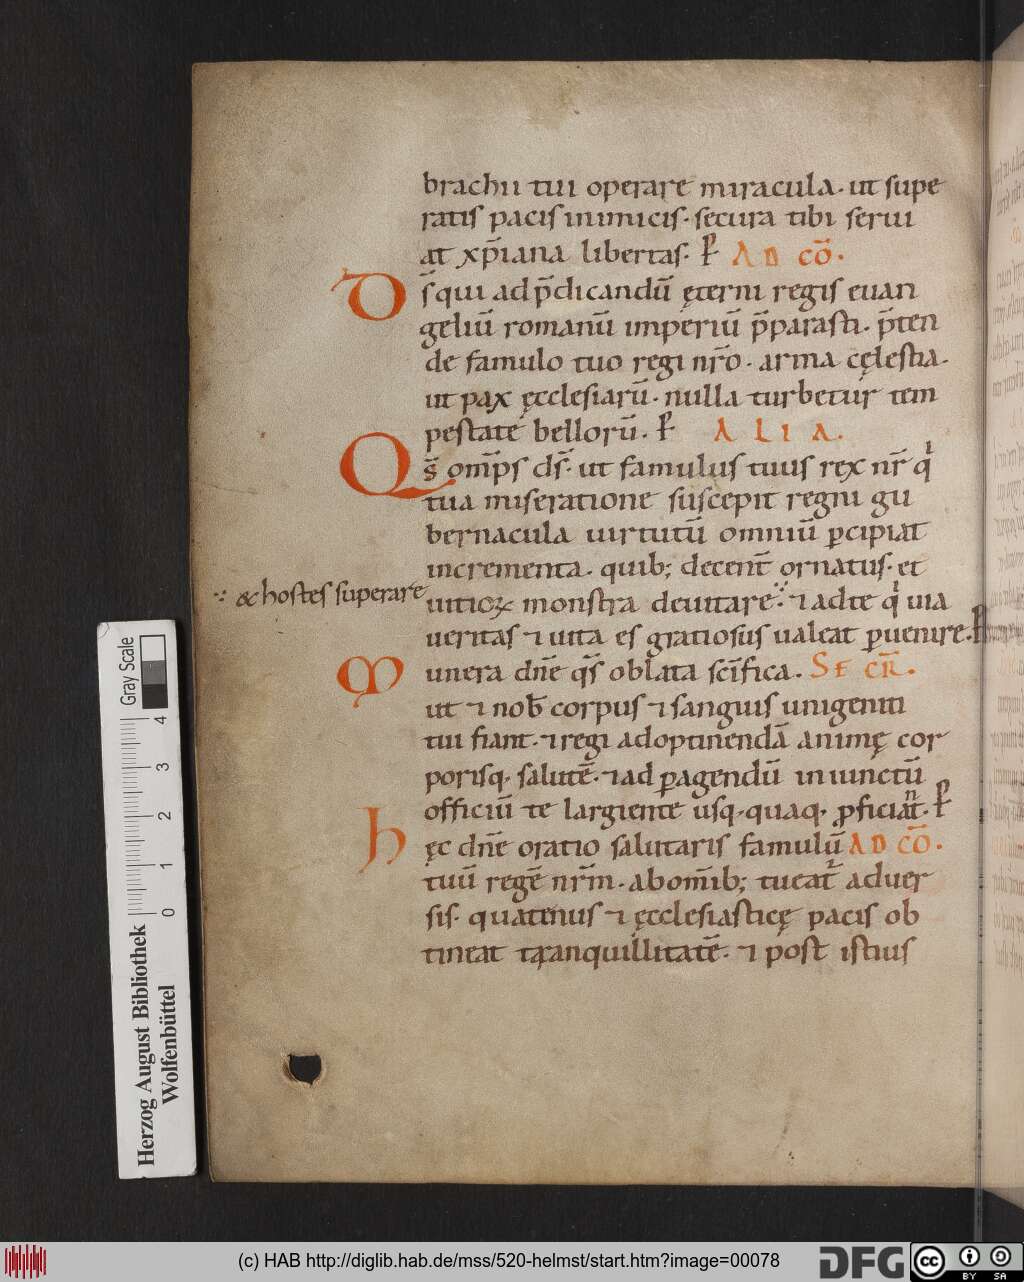 brachii tui operare miracula. ut supe
ratis pacis inimicis. secura tibi serui
at xp̄iana libertas. P̄ AD CŌ.
D s̄ qui ad p̄dicandū ęterni regis euan
geliū romanū imperiū p̄parasti. p̄ten
de famulo tuo regi nr̄o. arma cęlestia.
ut pax ęcclesiarū. nulla turbetur tem
pestate bellorū. P̄ ALIA.
Q s̄ omp̄s ds̄. ut famulus tuus rex nr̄ qͥ
tua miseratione suscepit regni gu
bernacula uirtutū omniū ꝑcipiat
incrementa. quib; decent̄ ornatus. et
⁘ & hostes superare
uitioꝝ monstra deuitare ⁘ ⁊ ad te qͥ uia
ueritas ⁊ uita es gratiosus ualeat ꝑuenire. P̄
M unera dn̄e qs̄ oblata scīfica. SECR̄.
ut ⁊ nob̄ corpus ⁊ sanguis unigeniti
tui fiant. ⁊ regi ad optinendā animę cor
porisq; salutē. ⁊ ad ꝑagendū iniunctū
officiū te largiente usq; quaq; ꝓficiant̄. P̄
H ęc dn̄e oratio salutaris famulū AD CŌ.
tuū regē nr̄m. ab om̄ib; tueat̄ aduer
sis. quatenus ⁊ ęcclesiasticę pacis ob
tineat tranquillitatē. ⁊ post istius
Gray Scale
4
3
2
1
0
Herzog August Bibliothek
Wolfenbüttel
(c) HAB http://diglib.hab.de/mss/520-helmst/start.htm?image=00078
DFG
cc BY SA